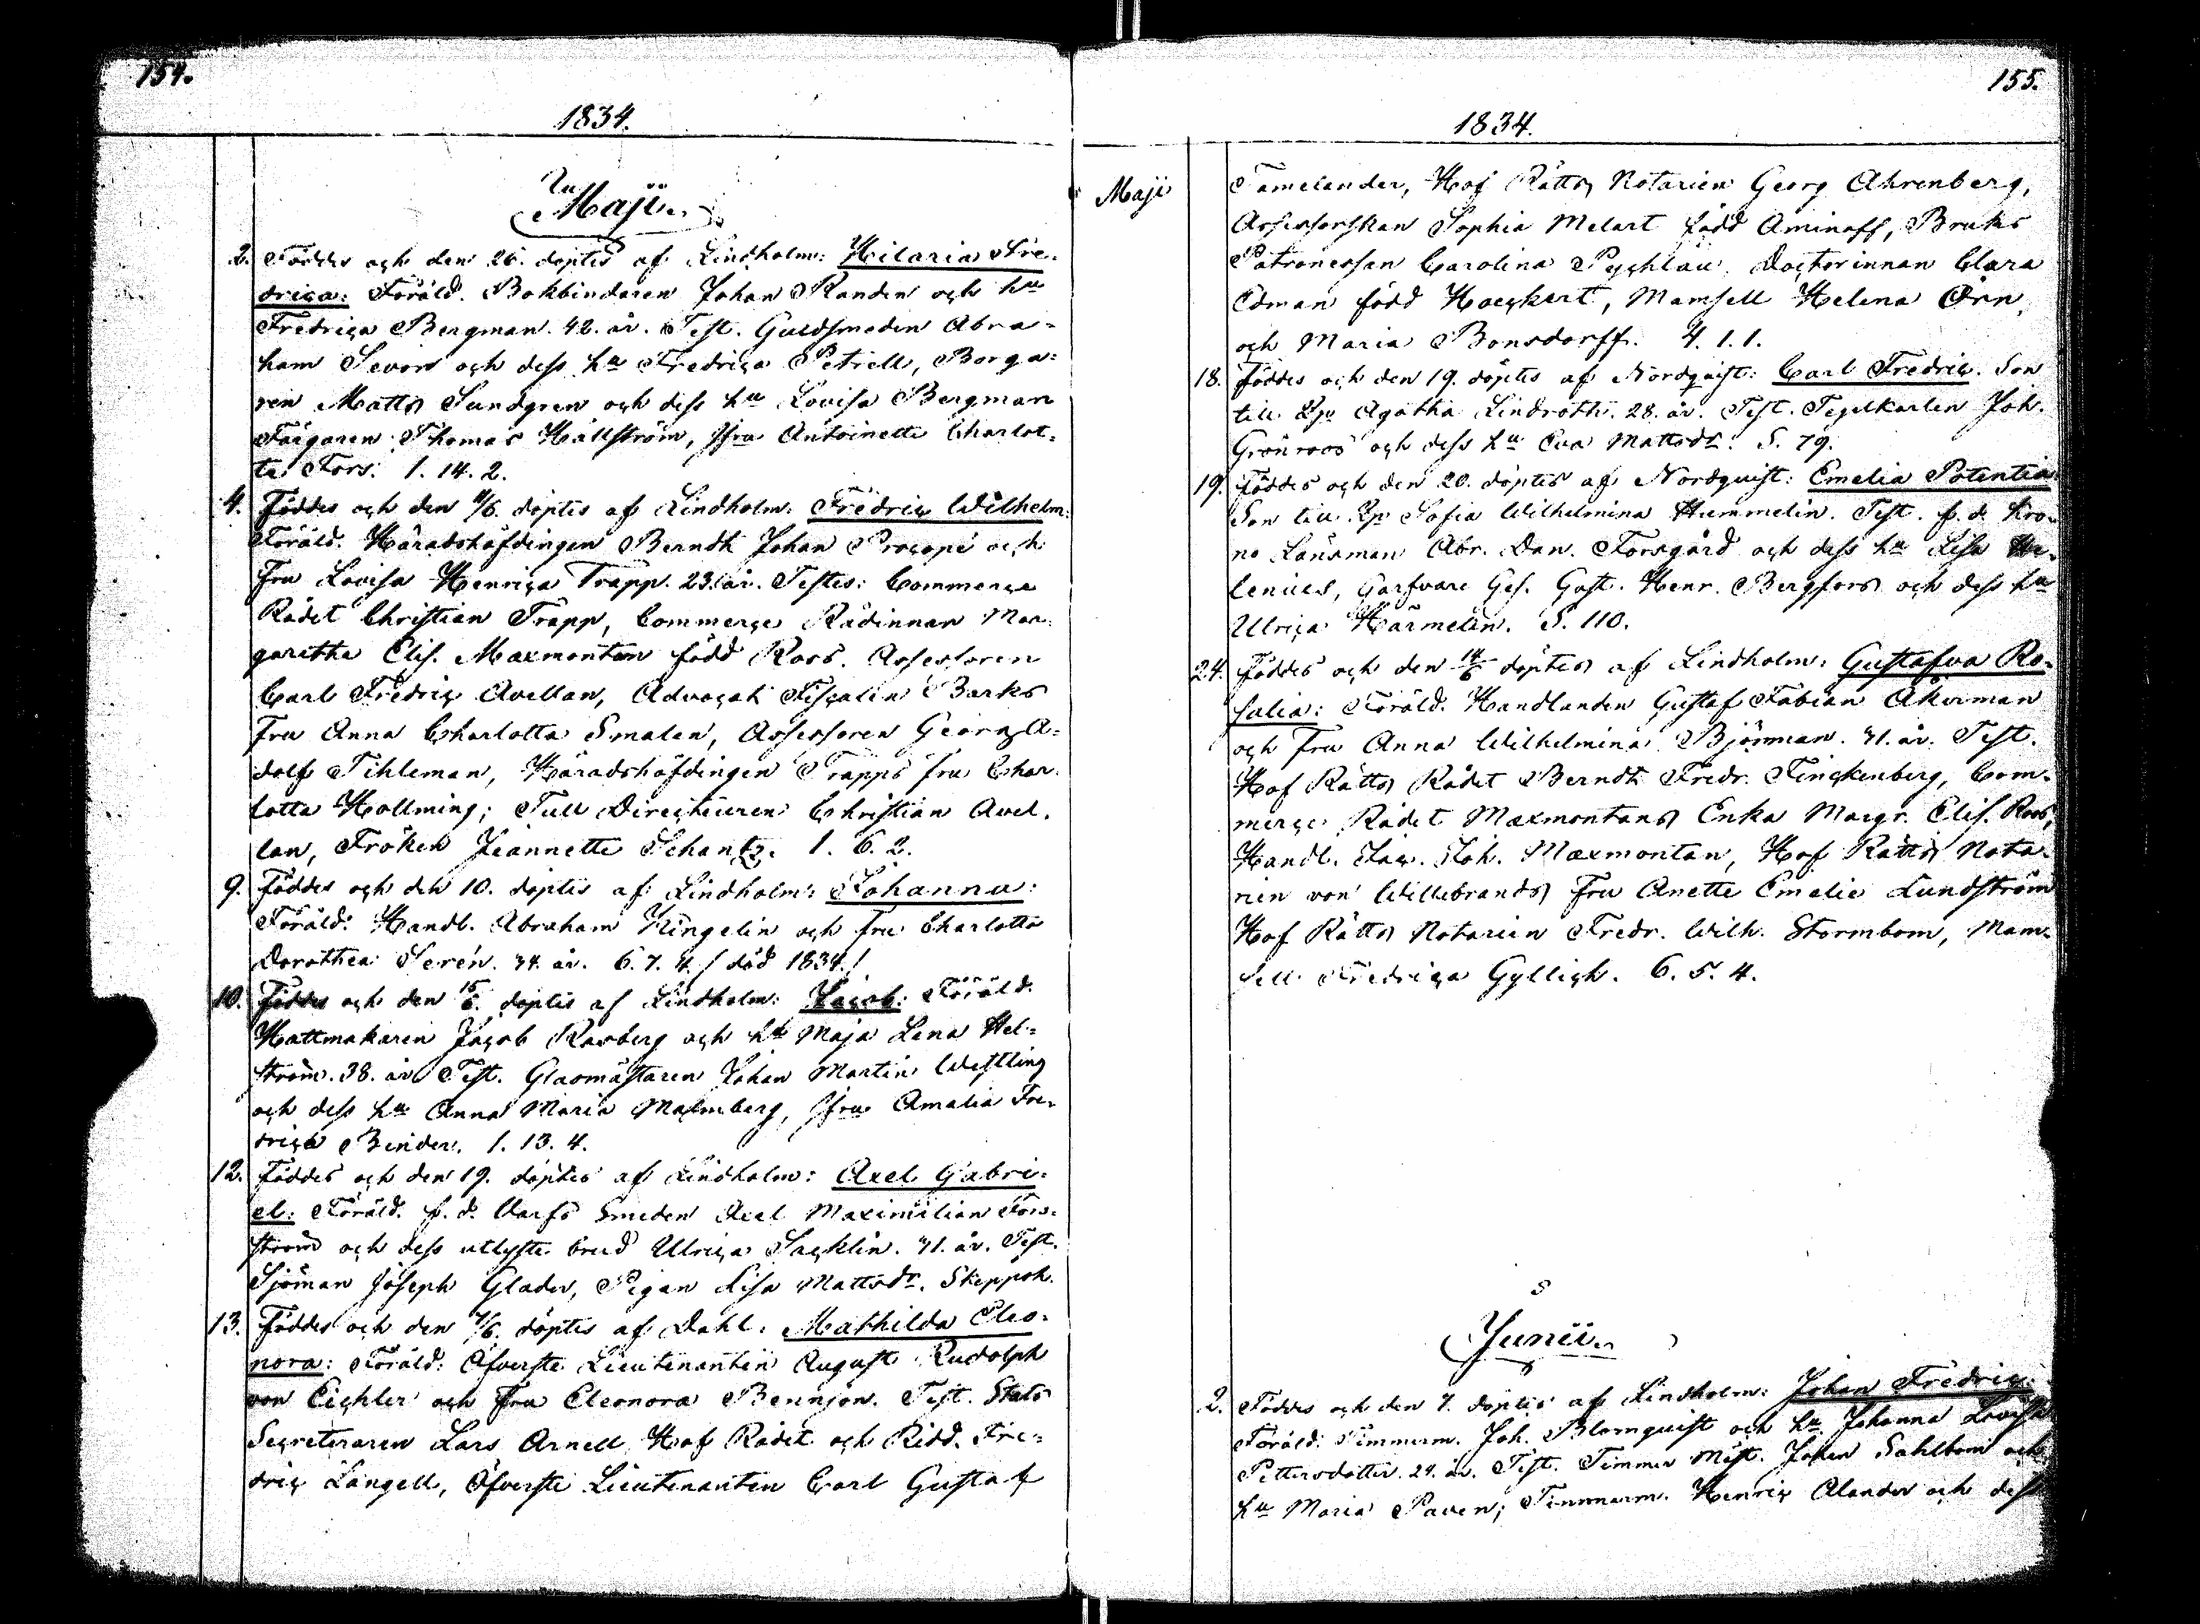 154.
1834.
Maji.
2. Föddes och den 26. döptes af Lindholm: Hilaria Fre-
drica: Föräld. Bokbindaren Johan Randen och hu
Fredrica Bergman. 42. år. Test. Guldsmeden Abra-
ham Sevon och dess hu Fredrica Petrell, Borga-
ren Matts Sundgren och dess hu Lovisa Bergman
Färgaren Thomas Hällström, Jfru Antoinette Charlot-
ta Fors. 1. 14. 2.
4. Föddes och den 4/6. döptes af Lindholm: Fredric Wilhelm:
Föräld. Häradshöfdingen Berndt Johan Procopé och
Fru Lovisa Henrica Trapp. 23. år. Testes: Commerce
Rådet Christian Trapp, Commerce Rådinnan Mar-
garetha Elis. Maxmontan född Roos. Assessoren
Carl Fredric Avellan, Advocat Fiscalen Barks
Fru Anna Charlotta Smalen, Assessoren Georg A-
dolf Tihleman, Häradshöfdingen Trapps fru Char-
lotta Hollming; Tull Directeuren Christian Avel-
lan, Fröken Jeannette Schantz. 1. 6. 2.
9. Föddes och den 10. döptes af Lindholm: Johanna:
Föräld. Handl. Abraham Kingelin och fru Charlotta
Dorothea Serén. 34. år. 6. 7. 4. / död 1834. /
10. Föddes och den 15/6. döptes af Lindholm: Jacob: Föräld.
Hattmakaren Jacob Roxberg och hu Maja Lena Hel-
ström. 38. år Test. Glasmästaren Johan Martin Westling
och dess hu Anna Maria Malmberg, Jfru Amalia Fre-
drica Binder. 1. 13. 4.
12. Föddes och den 19. döptes af Lindholm: Axel Gabri-
el: Föräld. f. d. Varfs Smeden Axel Maximilian Fors-
ström och dess utlyste brud Ulrica Sacklin. 31. år. Test.
Sjöman Joseph Glader, Pigan Lisa Mattsdr. Skeppsh.
13. Föddes och den 4/6. döptes af Dahl. Mathilda Eleo-
nora: Föräld: Öfverste Lieutenanten August Rudolph
von Eichler och Fru Eleonora Bennjon. Test. Stats
Secreteraren Lars Arnell, Hof Rådet och Ridd. Fre-
dric Langell, Öfverste Lieutenanten Carl Gustaf
155.
1834.
Maji
Tamelander, Hof Rätts Notarien Georg Ahrenberg,
Assessorskan Sophia Melart född Aminoff, Bruks
Patronessan Carolina Pychlau, Doctorinnan Clara
Edman född Haeckert, Mamsell Helena Örn,
och Maria Bonsdorff. 4. 1. 1.
18. Föddes och den 19. döptes af Nordquist: Carl Fredric. Son
till Agatha Lindroth. 28. år. Test. Tegelkarlen Joh.
Grönroos och dess hu Eva Mattsdr. S. 79.
19. Föddes och den 20. döptes af Nordquist: Emelia Potentia
Son till Sofia Wilhelmina Hummelin. Test. f. d. Kro-
no Länsman Abr. Dan. Forsgård och dess hu Lisa He-
lenius, Garfvare Ges. Gust. Henr. Bergfors och dess hu
Ulrica Härmelin. S. 110.
24. Föddes och den 14/6 döptes af Lindholm: Gustafva Ro-
salia: Föräld. Handlanden Gustaf Fabian Åkerman
och Fru Anna Wilhelmina Björnman. 31. år. Test.
Hof Rätts Rådet Berndt Fredr. Finckenberg, Com-
merce Rådet Maxmontans Enka Margr. Elis. Roos,
Handl. Jac. Joh. Maxmontan, Hof Rätts Nota-
rien von Willebrands Fru Anette Emelie Lundström
Hof Rätts Notarien Fredr. Wilh. Stormbom, Mam-
sell Fredrica Gyllich. 6. 5. 4.
Junii.
2. Föddes och den 7. döptes af Lindholm: Johan Fredric:
Föräld: Timmerm. Joh. Blomquist och hu Johanna Lovisa
Pettersdotter. 24. år. Test. Timmer Mäst. Johan Sahlbom och
hu Maria Paven; Timmerm. Henric Alander och dess